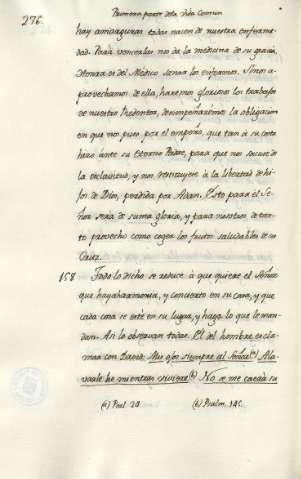 276.
Primera parte de la Vida Comun
hay amarguras todas nacen de nuestra enferme-
dad. Para vencerlas nos da la medicina de su gracia.
Honrara si del Médico sanar los enfermos. Si nos a-
provechamos de ella, haremos gloriosos los trabajos
de nuestro Redentor, desempeñarémos la obligacion
en que nos puso por el empeño, que tan à su costa
hizo ante su Eterno Padre, para que nos sacase de
la esclavitud, y nos restituyese à la libertad de hi-
jos de Dios, perdida por Adan. Esto para el Se-
ñor sera de suma gloria, y para nosotros de tan-
to provecho como coger los frutos saludables de su
Cruz.
158 Todo lo dicho se reduce à que quiere el Señor
que haya harmonia, y concierto en su casa, y que
cada cosa se esté en su lugar, y haga lo que le man-
dan. Asi lo observan todas. El del hombre excla-
mar con David: Mis ojos siempre al Señor (a) Ala-
varale he mientras viviere (b) No se me caerá su
(a) Psal. 24 (b) Psalm. 145.